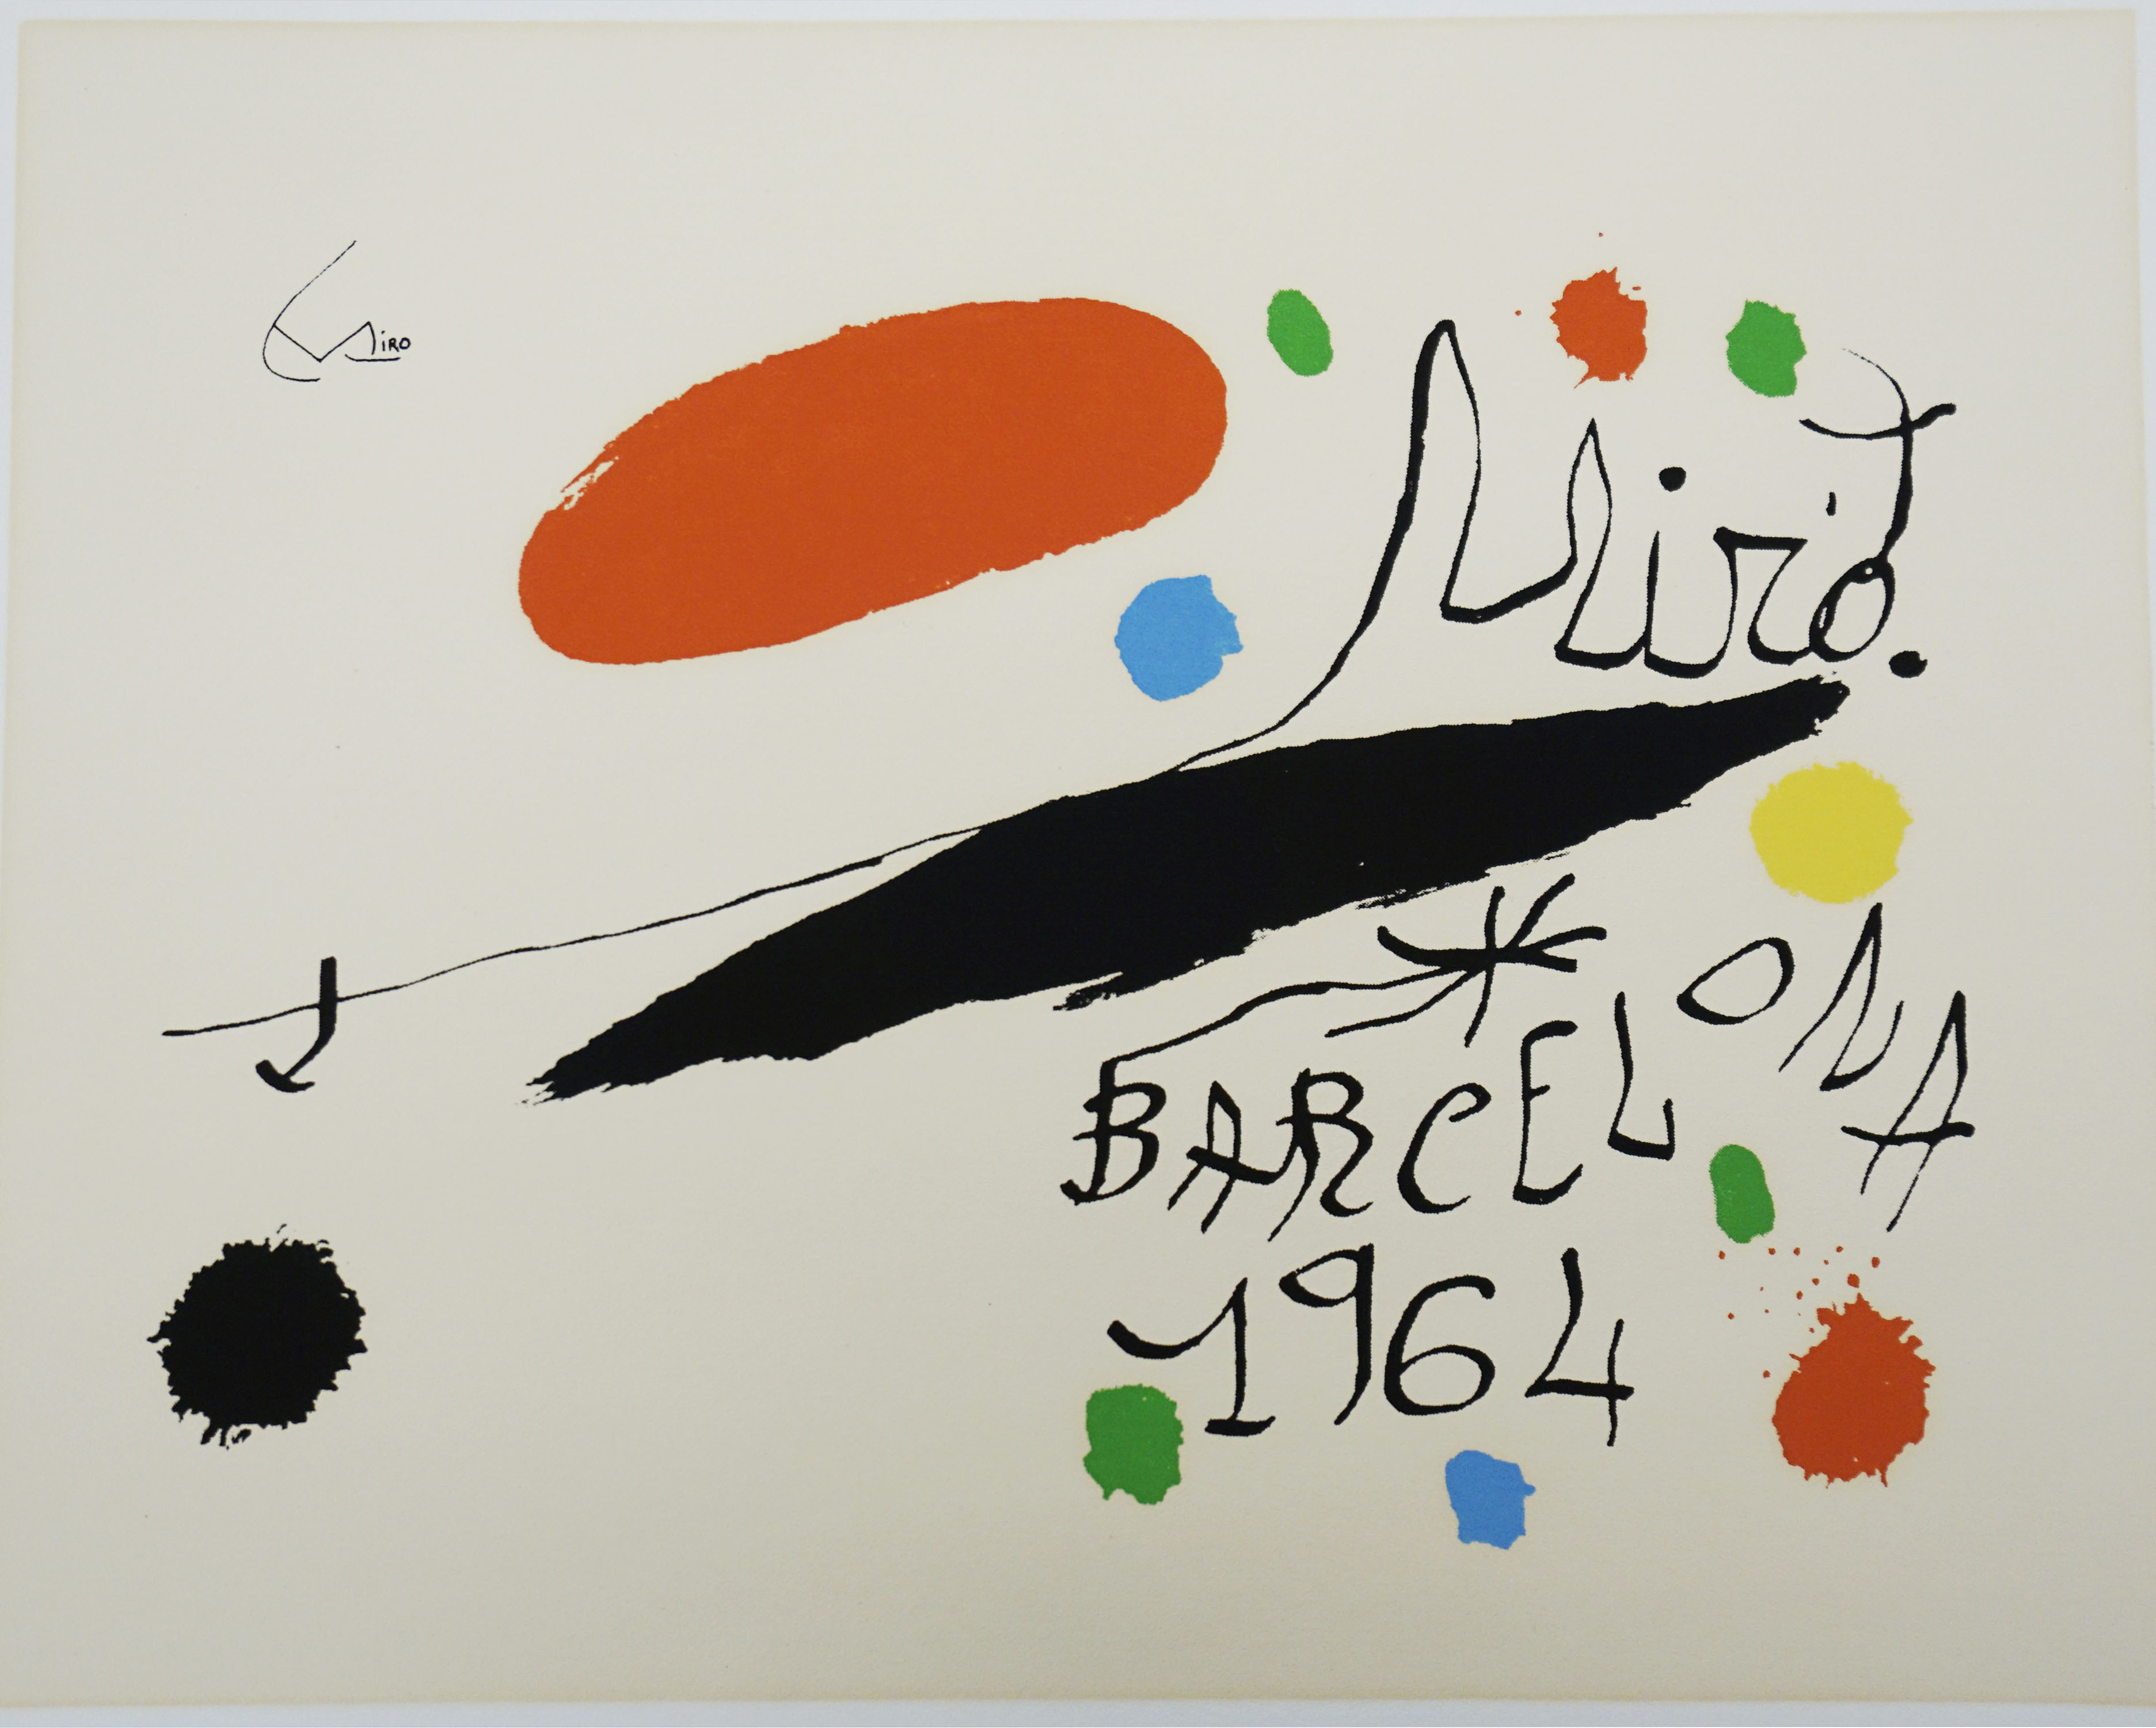 Miro
Miró.
BARCELONA
1964